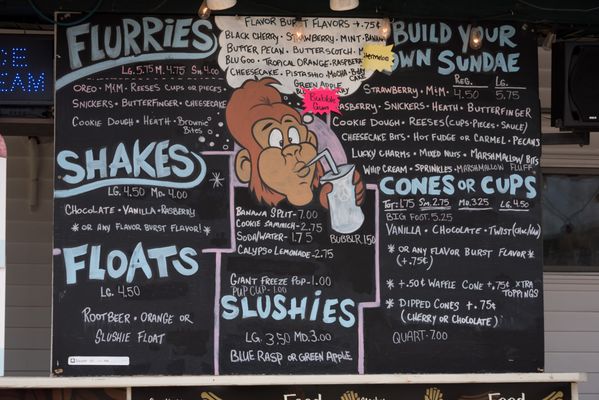 CREAM
FLURRIES
LG. 5.75 M. 4.75 SM. 4.00
OREO · M&M · REESES CUPS OR PIECES
SNICKERS · BUTTERFINGER · CHEESECAKE
COOKIE DOUGH · HEATH · BROWNIE BITES
SHAKES
LG. 4.50 MD. 4.00
CHOCOLATE · VANILLA · RASPBERRY
* OR ANY FLAVOR BURST FLAVOR! *
FLOATS
LG. 4.50
ROOTBEER · ORANGE OR
SLUSHIE FLOAT
FLAVOR BURST FLAVORS +.75¢
BLACK CHERRY · STRAWBERRY · MINT · BANANA
BUTTER PECAN · BUTTERSCOTCH
BLU GOO · TROPICAL ORANGE · RASPBERRY
CHEESECAKE · PISTASHIO · MOCHA
CAKE
GREEN APPLE
Watermelon
Bubble
Gum
BANANA SPLIT · 7.00
COOKIE SAMMICH · 2.75
SODA/WATER · 1.75
CALYPSO LEMONADE · 2.75
BUBBLR 1.50
GIANT FREEZE POP · 1.00
PUP CUP · 1.00
SLUSHIES
LG. 3.50 MD. 3.00
BLUE RASP OR GREEN APPLE
BUILD YOUR
OWN SUNDAE
REG. LG.
4.50 5.75
STRAWBERRY · M&M
RASPBERRY · SNICKERS · HEATH · BUTTERFINGER
COOKIE DOUGH · REESES (CUPS · PIECES · SAUCE)
CHEESECAKE BITS · HOT FUDGE OR CARMEL · PECANS
LUCKY CHARMS · MIXED NUTS · MARSHMALLOW BITS
WHIP CREAM · SPRINKLES · MARSHMALLOW FLUFF
CONES OR CUPS
TOT: 1.75 SM: 2.75 MD: 3.25 LG: 4.50
BIG FOOT: 5.25
VANILLA · CHOCOLATE · TWIST (CHOC/VAN)
* OR ANY FLAVOR BURST FLAVOR *
(+.75¢)
* +.50 WAFFLE CONE +.75¢ XTRA TOPPINGS *
* DIPPED CONES +.75¢
(CHERRY OR CHOCOLATE)
QUART · 7.00
Food
Food